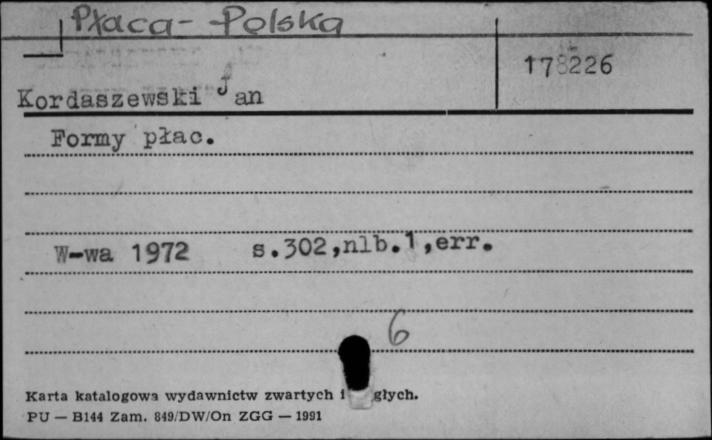 Płaca - Polska
178226
Kordaszewski Jan
Formy płac.
W-wa 1972 s.302,nlb.1,err.
6
Karta katalogowa wydawnictw zwartych i głych.
PU — B144 Zam. 849/DW/On ZGG — 1991